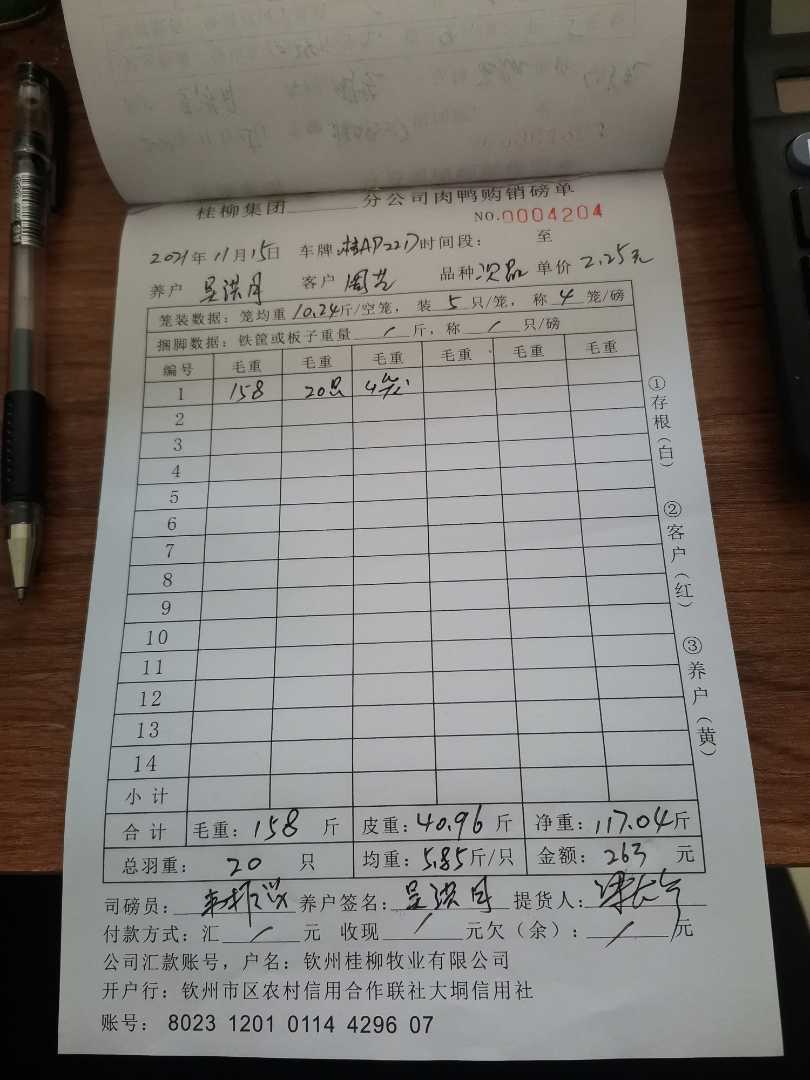 桂柳集团______分公司肉鸭购销磅单
NO.0004204
2021年11月15日 车牌:桂AD221D时间段: 至
养户 吴洪月 客户 周芒 品种 次品 单价 2.25元
笼装数据:笼均重10.24斤/空笼,装5只/笼,称4笼/磅
捆脚数据:铁筐或板子重量/斤,称/只/磅
编号 毛重 毛重 毛重 毛重 毛重 毛重
1 158 20只
2
3
4
5
6
7
8
9
10
11
12
13
14
小计
合计 毛重:158斤 皮重:40.96斤 净重:117.04斤
总羽重:20只 均重:5.85斤/只 金额:263元
司磅员: 养户签名:吴洪月 提货人:
付款方式:汇/元 收现/元欠(余):/元
公司汇款账号,户名:钦州桂柳牧业有限公司
开户行:钦州市区农村信用合作联社大垌信用社
账号: 8023 1201 0114 4296 07
①存根(白) ②客户(红) ③养户(黄)